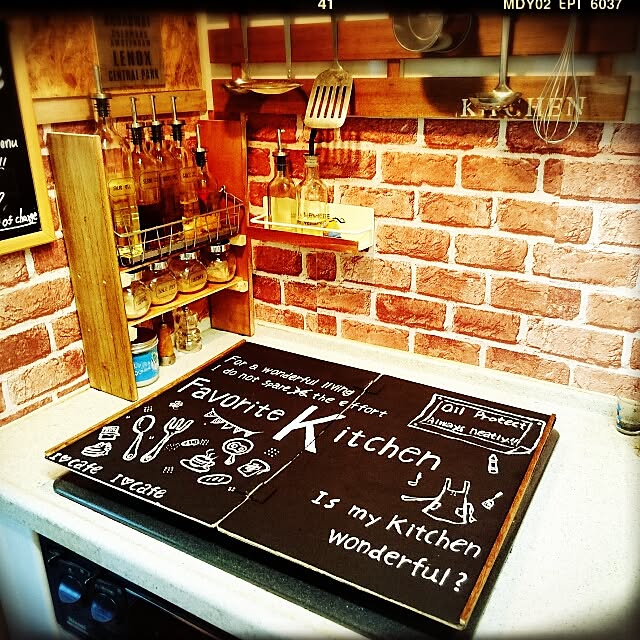 41
MDY02 EPT 6037
LENOX
CENTRAL PARK
KITCHEN
enu
!!
of charge
For a wonderful living
I do not spare the effort
Favorite Kitchen
Oil Protect
Always neatly!!
I♥cafe I♥cafe
Is my Kitchen
wonderful?